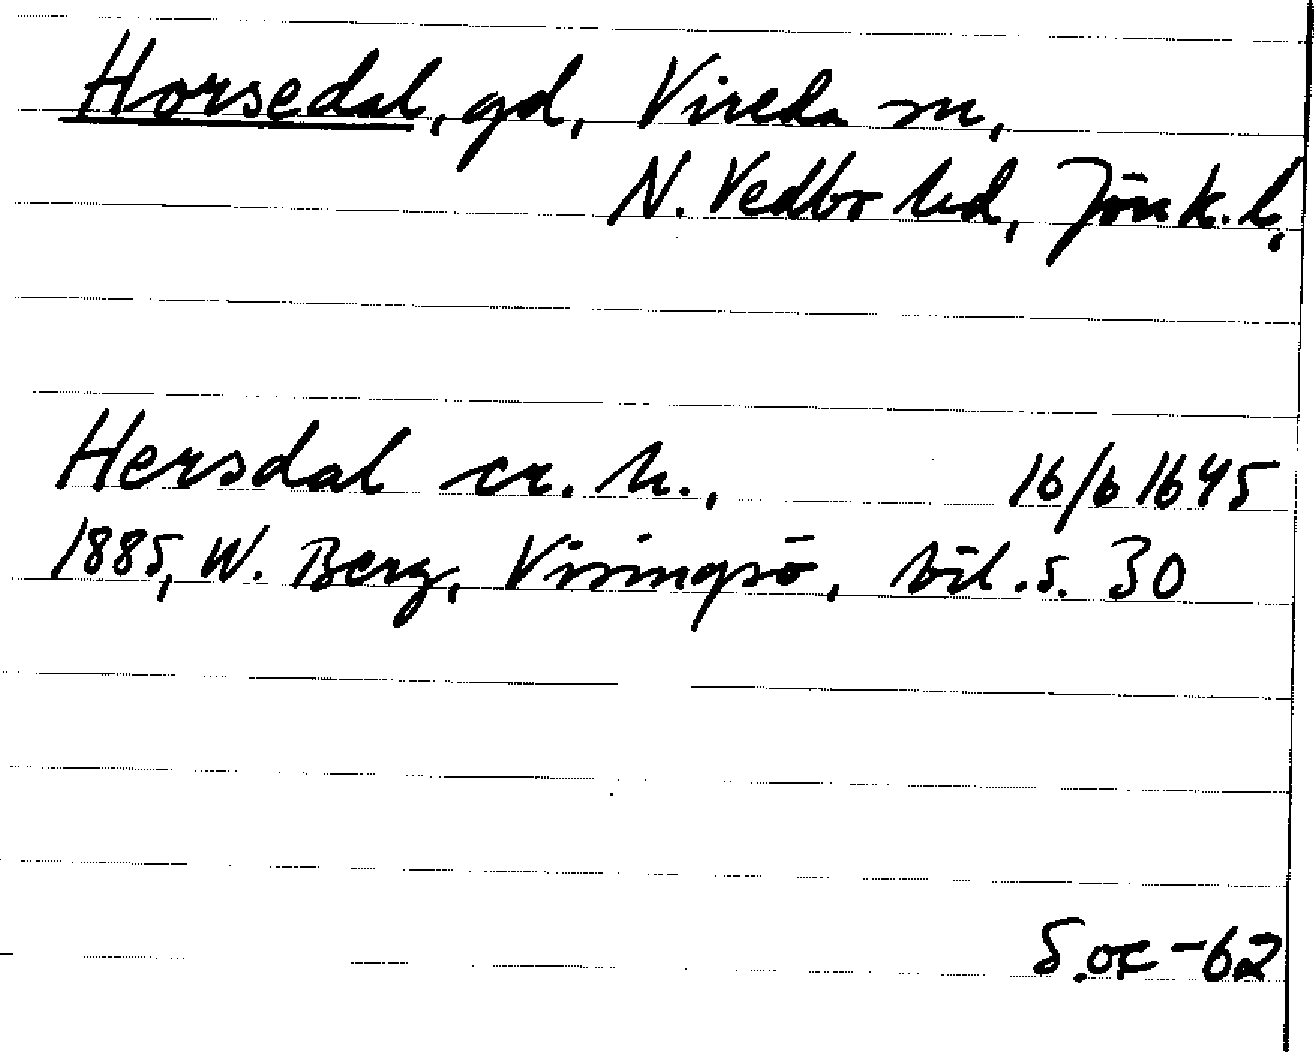 Horsedal, gd, Vireda sn,
N. Vedbo hd, Jönk. l.
Hersdal cr. h., 16/6 1645
1885, W. Berg, Visingsö, bil. s. 30
S.oc -62